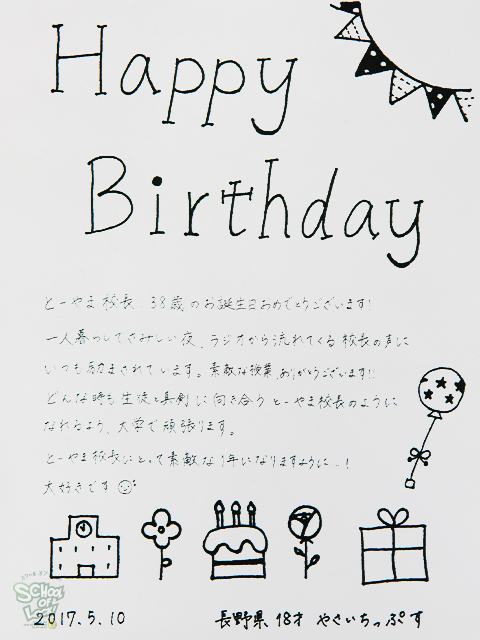 Happy
Birthday
とーやま校長、38歳のお誕生日おめでとうございます!
一人暮らしてさみしい夜、ラジオから流れてくる校長の声に
いつも励まされてします。素敵な授業、ありがとうございます!!
どんな時も生徒と真剣に向き合うとーやま校長のように
なれるよう、大学で頑張ります。
とーやま校長にとって素敵な1年になりますように…!
大好きです
SCHOOL OF LOCK!
2017.5.10
長野県 18才 やさいちっぷす